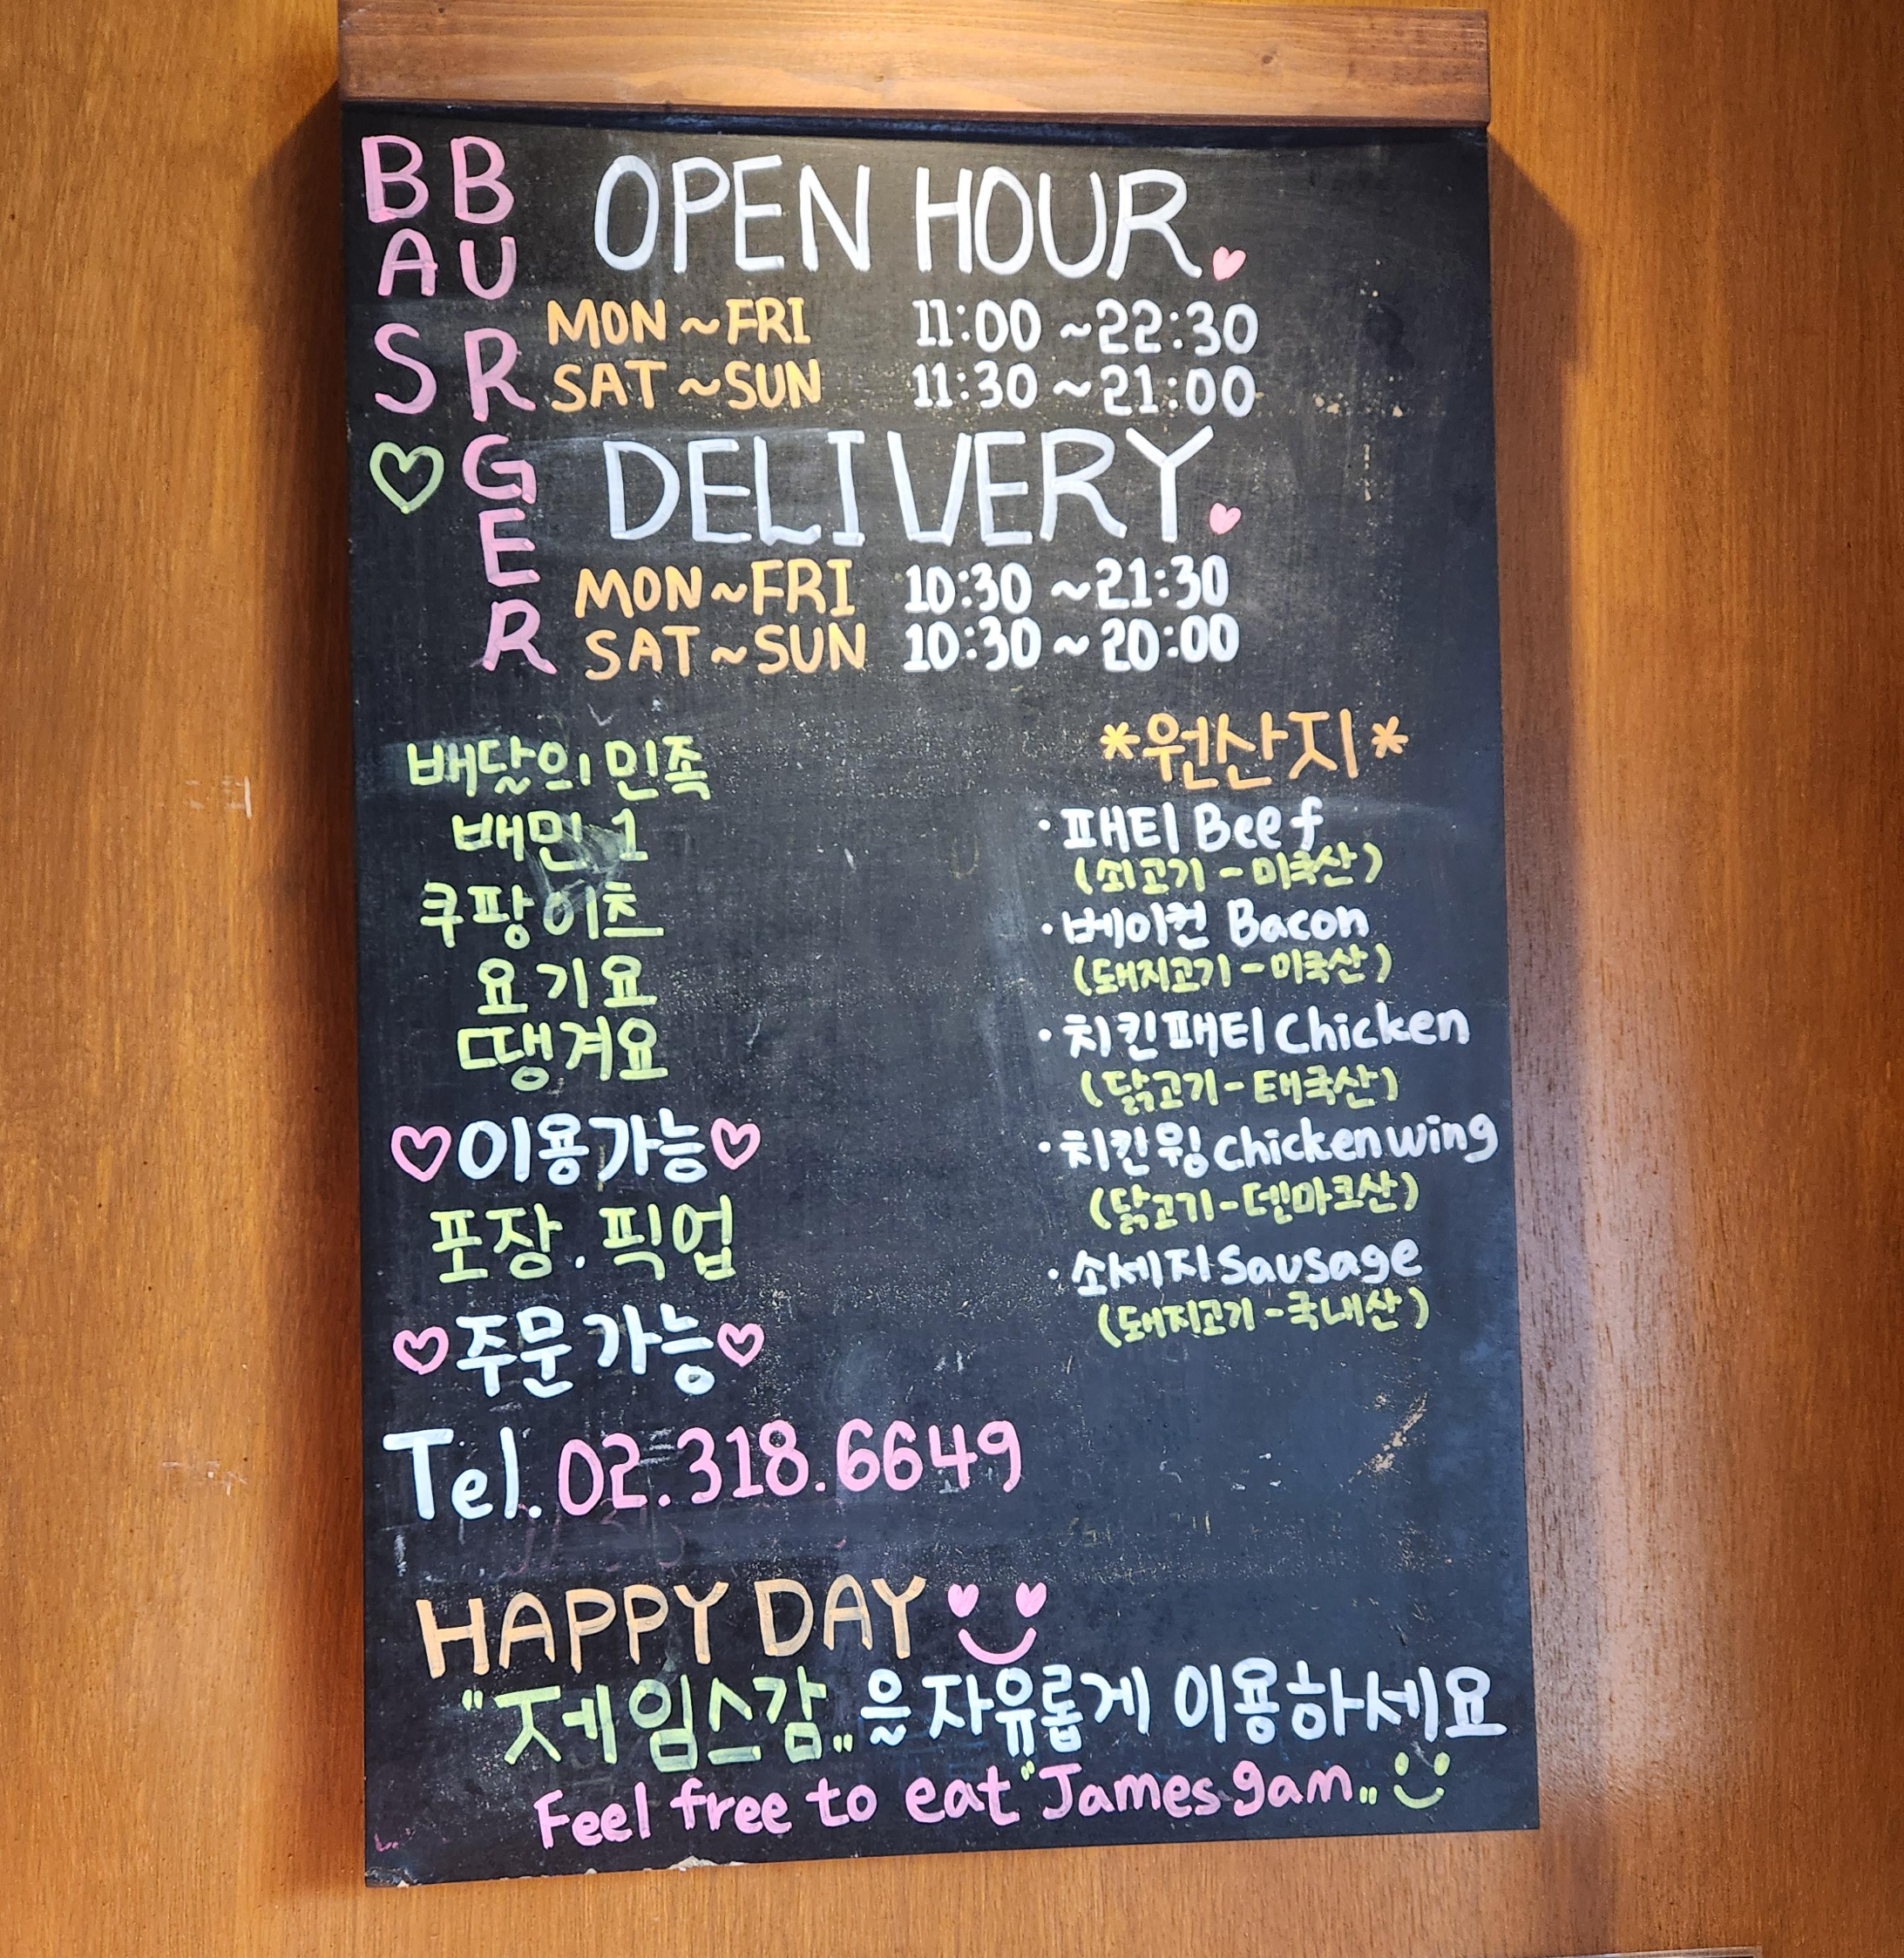 BAS
BURGER
OPEN HOUR.
MON ~ FRI 11:00 ~ 22:30
SAT ~ SUN 11:30 ~ 21:00
DELIVERY.
MON ~ FRI 10:30 ~ 21:30
SAT ~ SUN 10:30 ~ 20:00
배달의 민족
배민 1
쿠팡이츠
요기요
땡겨요
♡이용가능♡
포장 . 픽업
♡주문 가능♡
*원산지*
· 패티 Beef
(쇠고기 - 미국산)
· 베이컨 Bacon
(돼지고기 - 미국산)
· 치킨패티 Chicken
(닭고기 - 태국산)
· 치칸윙 chicken wing
(닭고기 - 덴마크산)
· 소세지 Sausage
(돼지고기 - 국내산)
Tel. 02.318.6649
HAPPY DAY
"제임스감„을 자유롭게 이용하세요
Feel free to eat "James gam„